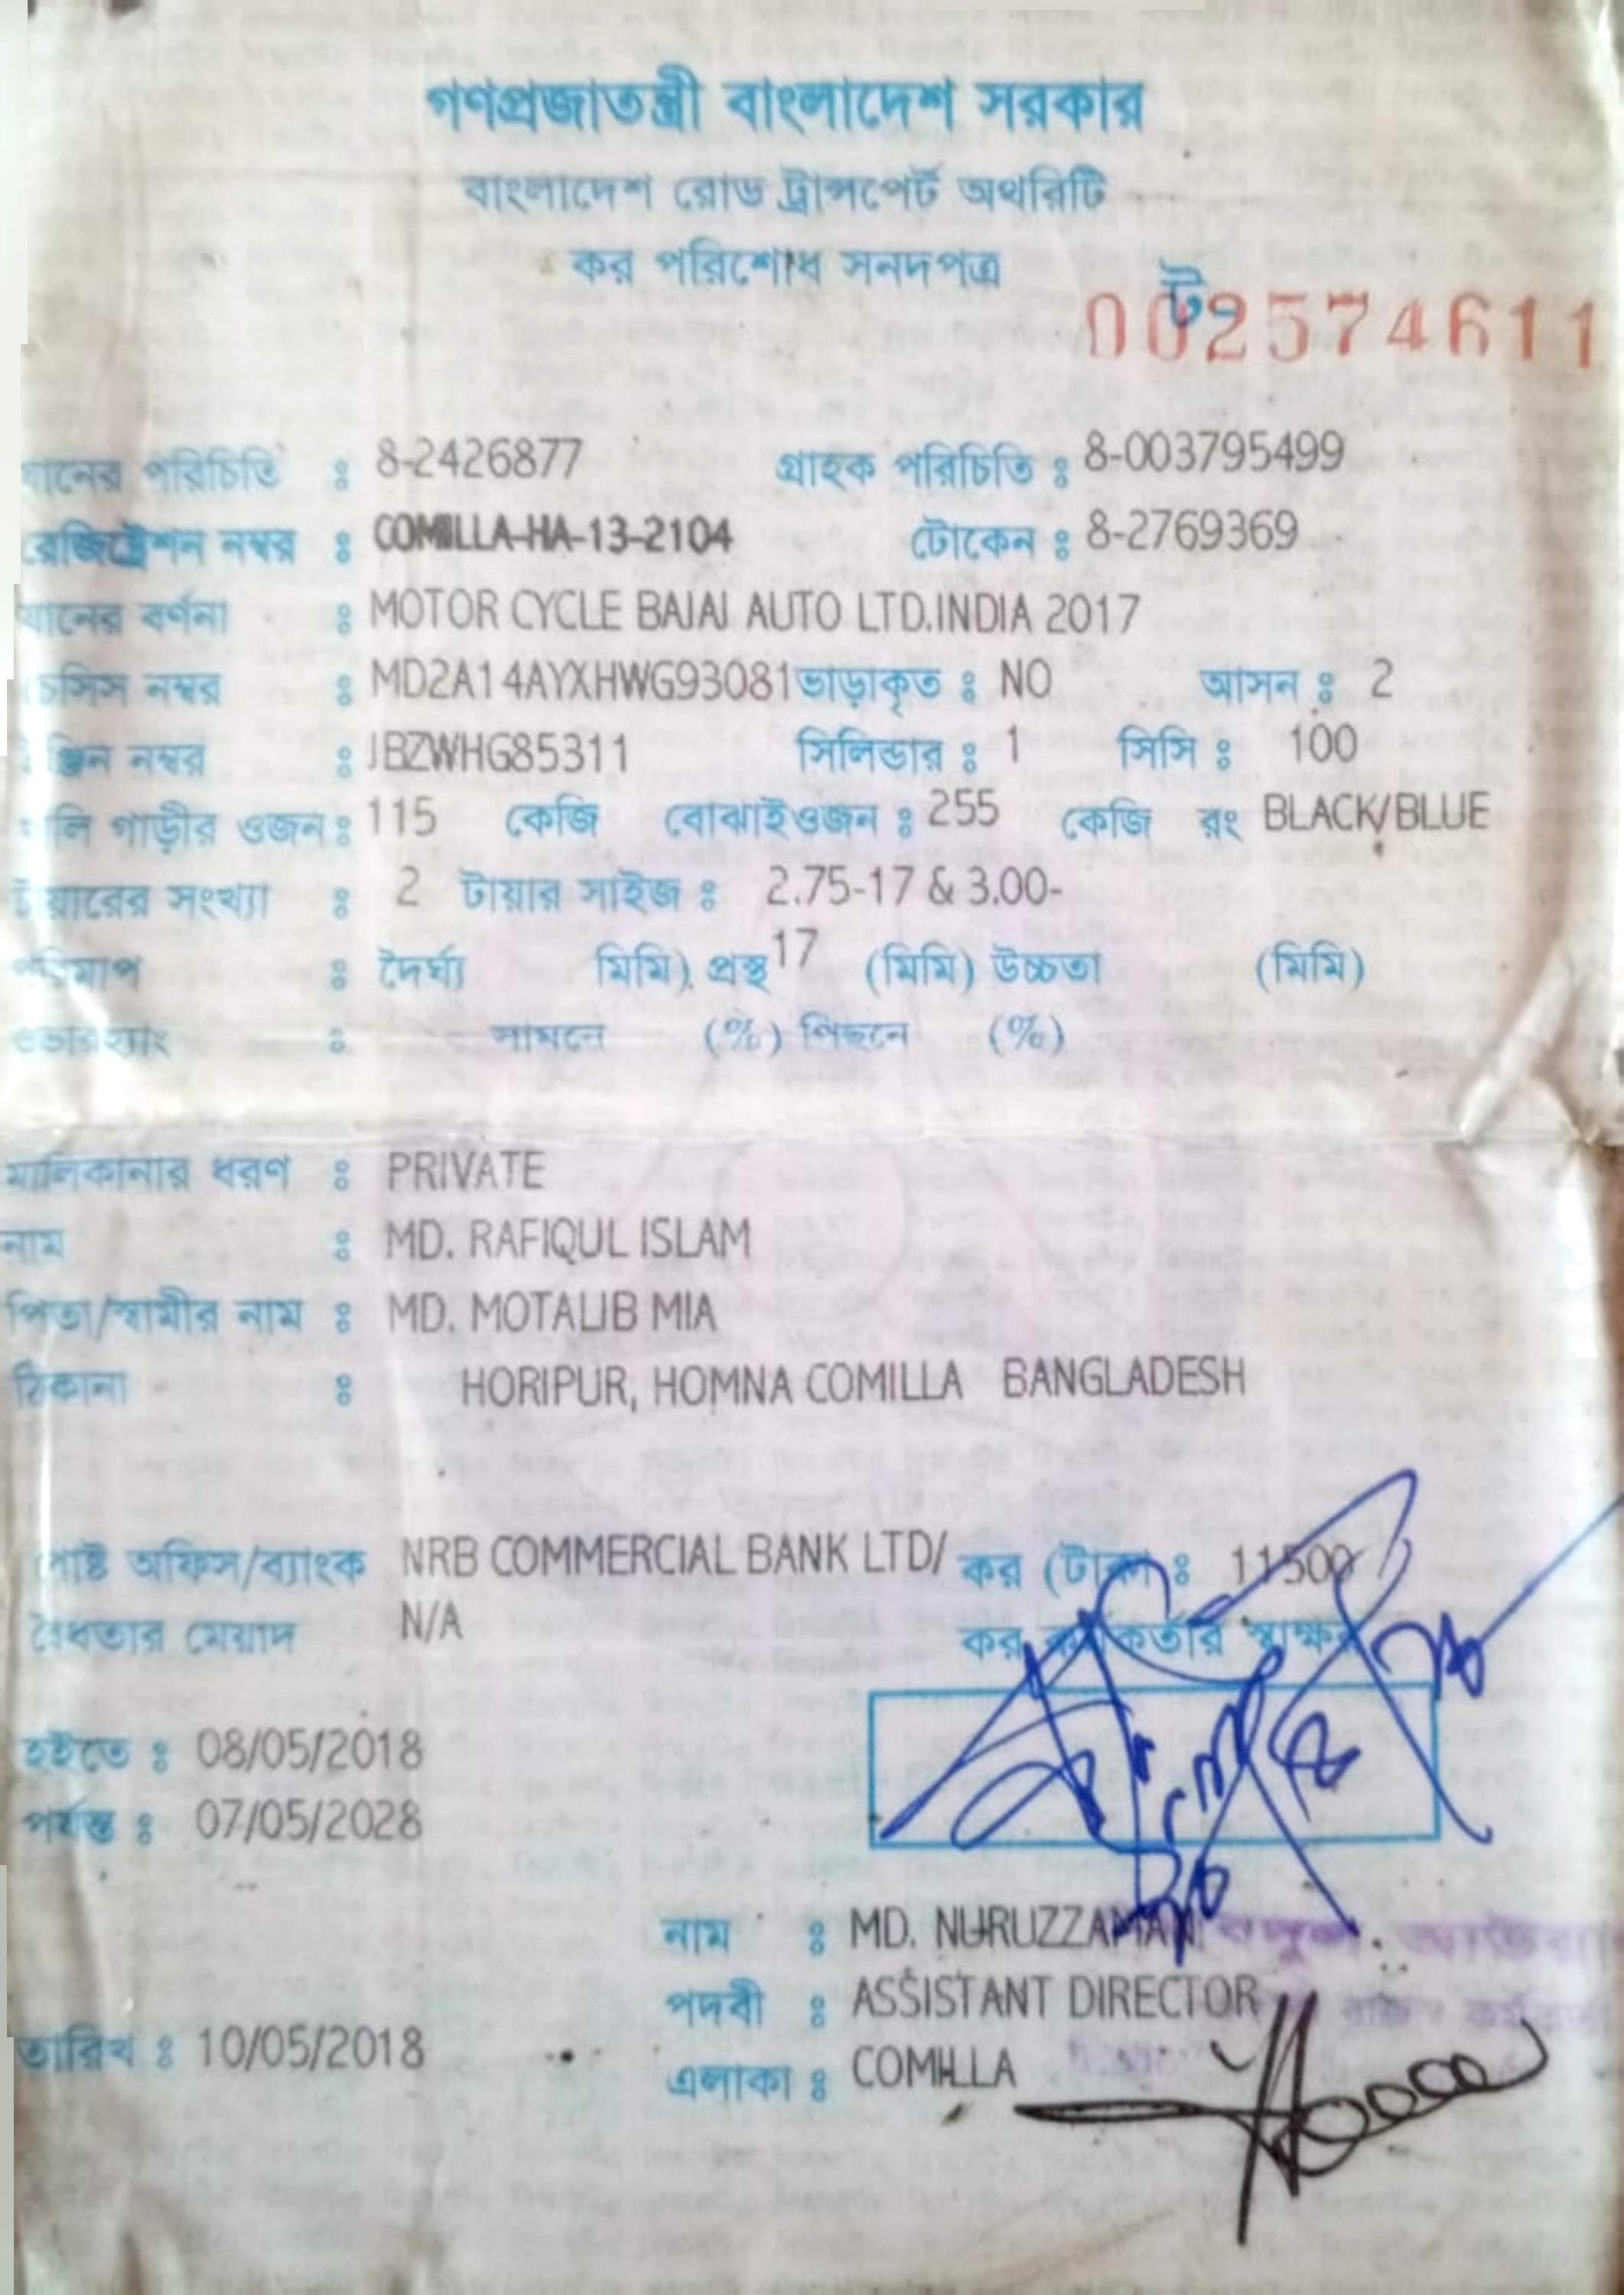 গণপ্রজাতন্ত্রী বাংলাদেশ সরকার
বাংলাদেশ রোড ট্রান্সপোর্ট অথরিটি
কর পরিশোধ সনদপত্র
ট- 002574611
যানের পরিচিতি : 8-2426877 গ্রাহক পরিচিতি : 8-003795499
রেজিষ্ট্রেশন নম্বর : COMILLA-HA-13-2104 টোকেন : 8-2769369
যানের বর্ণনা : MOTOR CYCLE BAJAJ AUTO LTD.INDIA 2017
চেসিস নম্বর : MD2A14AYXHWG93081 ভাড়াকৃত : NO আসন : 2
ইঞ্জিন নম্বর : JBZWHG85311 সিলিন্ডার : 1 সিসি : 100
খালি গাড়ীর ওজন : 115 কেজি বোঝাইওজন : 255 কেজি রং BLACK/BLUE
টায়ারের সংখ্যা : 2 টায়ার সাইজ : 2.75-17 & 3.00-
পরিমাপ : দৈর্ঘ্য মিমি) প্রস্থ 17 (মিমি) উচ্চতা (মিমি)
ওভারহ্যাং : সামনে (%) পিছনে (%)
মালিকানার ধরণ : PRIVATE
নাম : MD. RAFIQUL ISLAM
পিতা/স্বামীর নাম : MD. MOTALIB MIA
ঠিকানা : HORIPUR, HOMNA COMILLA BANGLADESH
পোষ্ট অফিস/ব্যাংক NRB COMMERCIAL BANK LTD/ কর (টাকা : 11500
বৈধতার মেয়াদ N/A কর কর্মকর্তার স্বাক্ষর
হইতে : 08/05/2018
পর্যন্ত : 07/05/2028
নাম : MD. NURUZZAMAN
পদবী : ASSISTANT DIRECTOR
তারিখ : 10/05/2018
এলাকা : COMILLA